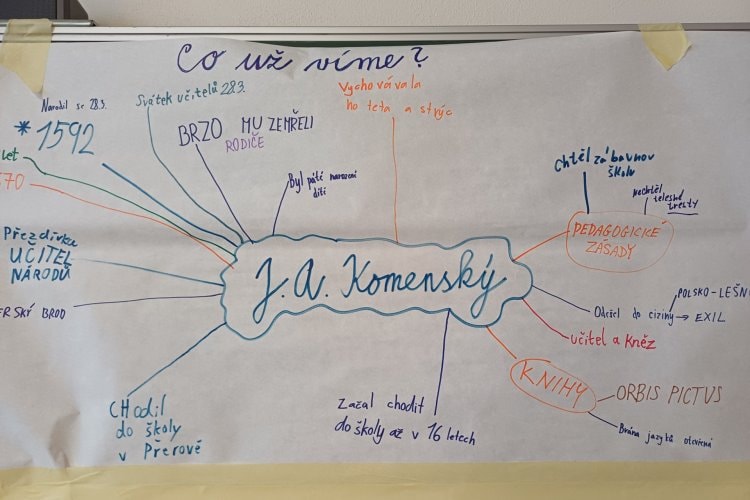 Co už víme?
Narodil se 28.3.
* 1592
Svátek učitelů 28.3.
BRZO MU ZEMŘELI
RODIČE
Vychovávala
ho teta a strýc
Byl páté narozené
dítě
Chtěl zábavnou
školu
nechtěl
tělesné
tresty
PEDAGOGICKÉ
ZÁSADY
let
70
Přezdívka
UČITEL
NÁRODŮ
ERSKÝ BROD
J. A. Komenský
POLSKO-LEŠN
Odešel do ciziny → EXIL
učitel a Kněz
KNIHY
ORBIS PICTUS
Brána jazyků otevřená
CHodil
do školy
v Přerově
Začal chodit
do školy až v 16 letech